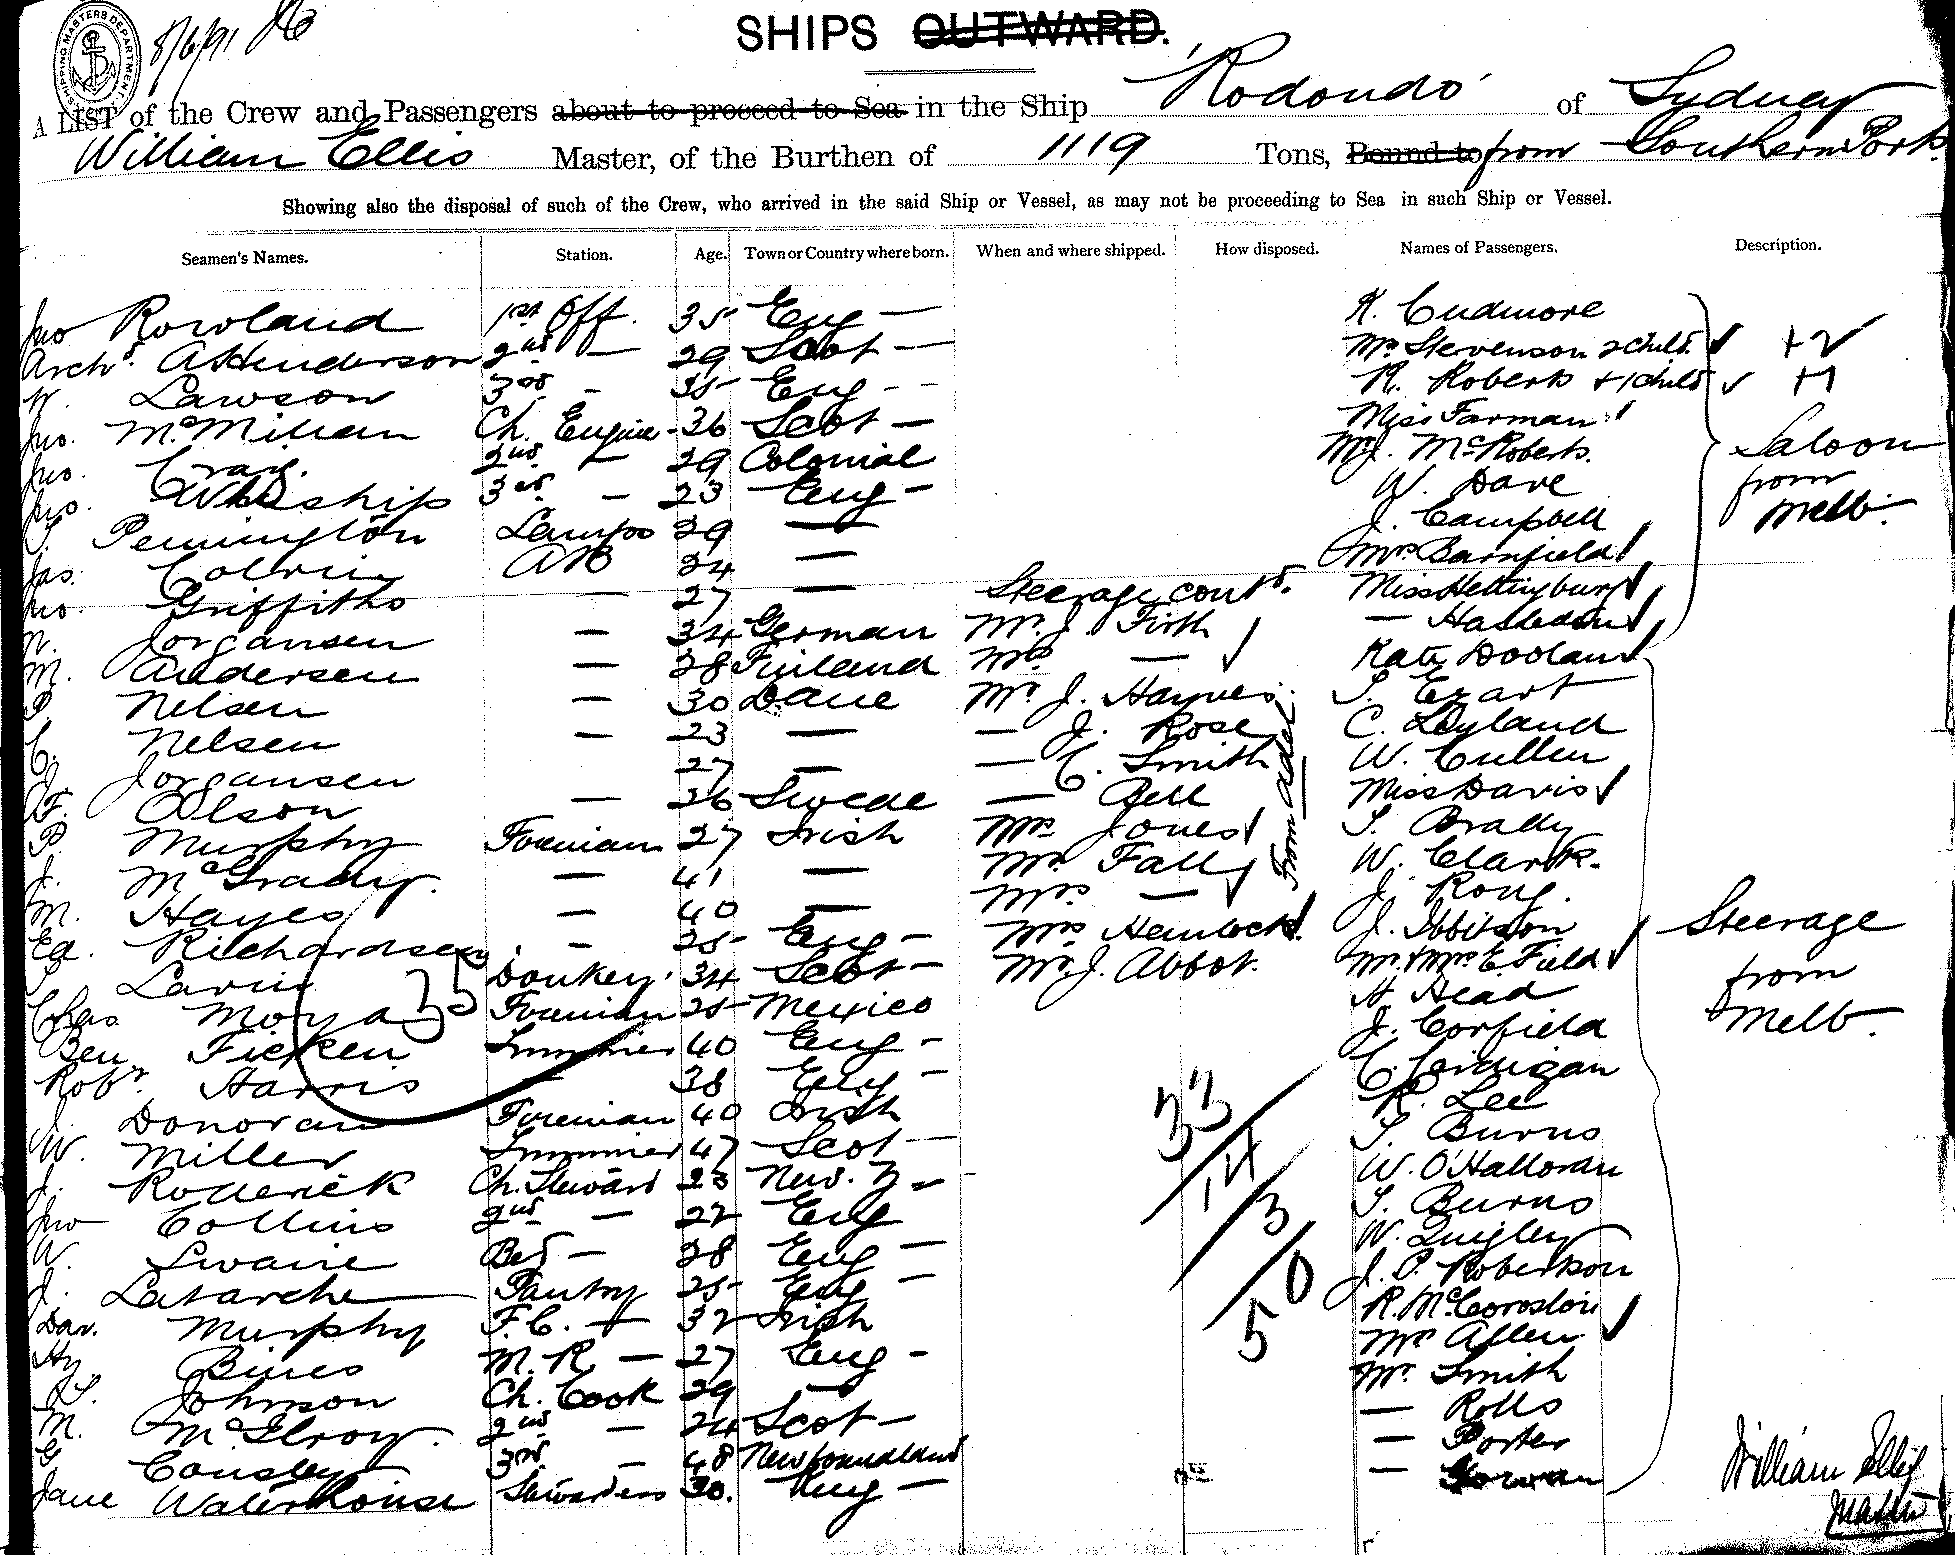 SHIPPING MASTERS DEPARTMENT
8/6/91
SHIPS OUTWARD.
A LIST of the Crew and Passengers about to proceed to Sea in the Ship 'Rodondo' of Sydney
William Ellis Master, of the Burthen of 1119 Tons, Bound to from Southern Ports
Showing also the disposal of such of the Crew, who arrived in the said Ship or Vessel, as may not be proceeding to Sea in such Ship or Vessel.
Seamen's Names. Station. Age. Town or Country where born. When and where shipped. How disposed. Names of Passengers. Description.
Jno Rowland 1st Off. 35 Eng —
Archd. A Henderson 2nd — 29 Scot —
W. Lawson 3rd - 35 Eng - -
Jno. McMillan Ch. Engine - 36 Scot —
Jno. Craig. 2nd — 29 Colonial
Jno. 3rd — 23 Eng —
Pennington Lamps 39 —
Jas. AB 34 —
Jno. Griffiths — 27 —
N. Jorgansen — 34 German
M. Andersen — 38 Finland
P Nelsen — 30 Dane
C. Nelsen — 23 —
J. Jorgansen 27 —
F. Olson — 26 Swede
P. Murphy Foreman 27 Irish
J. McGrady. — 41 —
M. Hayes — 40 —
Ed. Richardson — 25 Eng —
Donkey 34 Scot —
Chas Moya Foreman 25 Mexico
Ben Ficken Trimmer 40 Eng -
Robt. Harris — 38 Eng —
J. Donovan Foreman 40 Irish
W. Miller Trimmer 47 Scot —
J. Roderick Ch. Steward 23 New. Z —
Jno Collins 2nd — 22 Eng
W. Swaine Bed — 28 Eng —
J. Latarche Pantry 25 Eng —
Dav. Murphy F.C. — 32 Irish
Hy Bines M.R — 27 Eng -
Johnson Ch. Cook 29 —
M. McIlroy. 2nd — 24 Scot —
G Cousley 3rd — 48 Newfoundland
Jane Waterhouse Stewardess 30. Eng —
35
Steerage contd.
Mr. J. Firth
Mrs —
Mr J. Haynes.
— J. Rose
— C. Smith
— Bell
Mrs Jones
Mr. Fall
Mrs —
Mrs Hemlock
Mr J. Abbot.
From Adel
33
14
3
50
K. Cudmore
Mrs Stevenson 2 child. +2
R. Roberts + 1 child +1
Miss Farman
Mr J. McRoberts.
W. Dave
J. Campbell
Mrs Barnfield
Miss Hettingburg
— Hasledon
Saloon
from
Melb.
Kate Doolan
T. Ezart
C. Leyland
W. Cullen
Miss Davis
T. Brady
W. Clark.
J. Rong.
J. Ibbitson
Mr & Mrs E. Field
H. Head
J. Corfield
C. Corrigan
R. Lee
T. Burns
W. O'Halloran
T. Burns
W. Quigley
J. P. Robertson
Mrs Allen
Mr. Smith
— Rolls
— Porter
Steerage
from
Melb.
William Ellis
Master